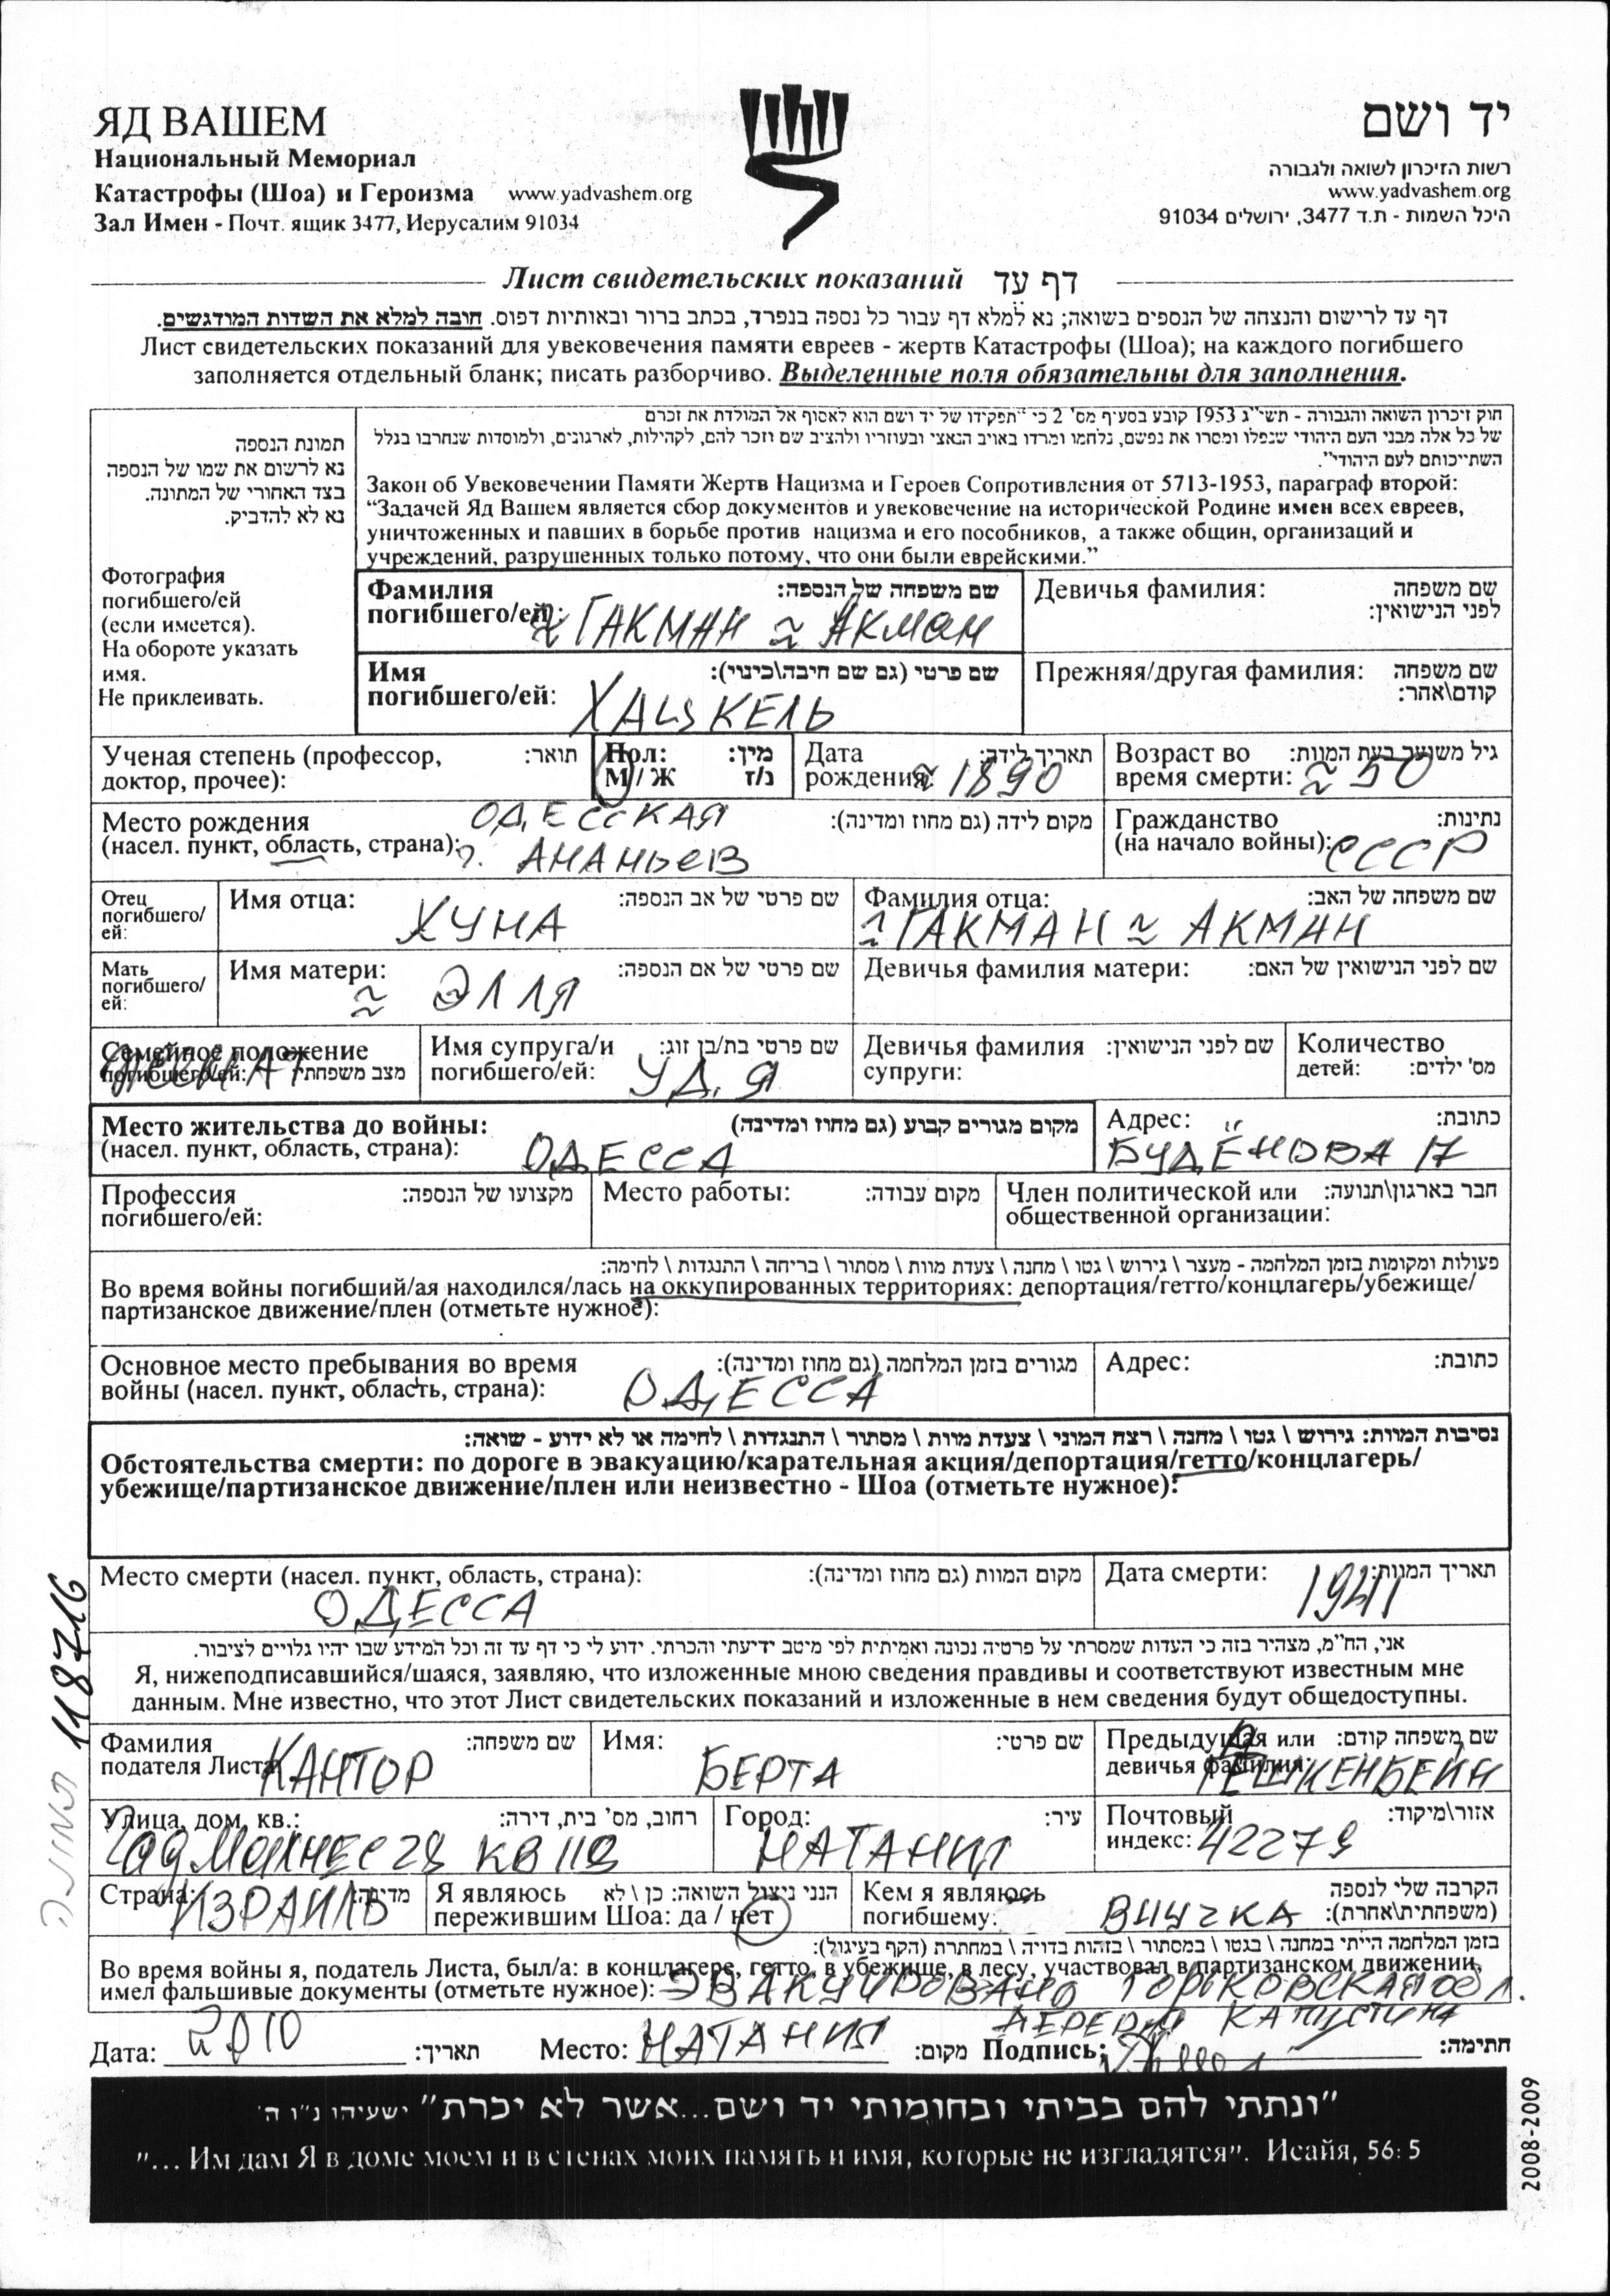 ЯД ВАШЕМ
Национальный Мемориал
Катастрофы (Шоа) и Героизма www.yadvashem.org
Зал Имен - Почт. ящик 3477, Иерусалим 91034
יד ושם
רשות הזיכרון לשואה ולגבורה
www.yadvashem.org
היכל השמות - ת.ד 3477, ירושלים 91034
Лист свидетельских показаний דף עד
דף עד לרישום והנצחה של הנספים בשואה; נא למלא דף עבור כל נספה בנפרד, בכתב ברור ובאותיות דפוס. חובה למלא את השדות המודגשים.
Лист свидетельских показаний для увековечения памяти евреев - жертв Катастрофы (Шоа); на каждого погибшего
заполняется отдельный бланк; писать разборчиво. Выделенные поля обязательны для заполнения.
תמונת הנספה
נא לרשום את שמו של הנספה
בצד האחורי של המתונה.
נא לא להדביק.
Фотография
погибшего/ей
(если имеется).
На обороте указать
имя.
Не приклеивать.
חוק זיכרון השואה והגבורה - תשי"ג 1953 קובע בסעיף מס' 2 כי "תפקידו של יד ושם הוא לאסוף אל המולדת את זכרם
של כל אלה מבני העם היהודי שנפלו ומסרו את נפשם, נלחמו ומרדו באויב הנאצי ובעוזריו ולהציב שם וזכר להם, לקהילות, לארגונים, ולמוסדות שנחרבו בגלל
השתייכותם לעם היהודי".
Закон об Увековечении Памяти Жертв Нацизма и Героев Сопротивления от 5713-1953, параграф второй:
“Задачей Яд Вашем является сбор документов и увековечение на исторической Родине имен всех евреев,
уничтоженных и павших в борьбе против нацизма и его пособников, а также общин, организаций и
учреждений, разрушенных только потому, что они были еврейскими.”
Фамилия שם משפחה של הנספה:
погибшего/ей: ≈ ГАКМАН ≈ АКМАН
Девичья фамилия: שם משפחה
לפני הנישואין:
Имя שם פרטי (גם שם חיבה\כינוי):
погибшего/ей: ХАЦКЕЛЬ
Прежняя/другая фамилия: שם משפחה
קודם\אחר:
Ученая степень (профессор, תואר:
доктор, прочее):
Пол: מין:
М / Ж ז/נ
Дата תאריך לידה:
рождения: ≈ 1890
Возраст во גיל משוער בעת המוות:
время смерти: ≈ 50
Место рождения ОДЕССКАЯ מקום לידה (גם מחוז ומדינה):
(насел. пункт, область, страна): г. АНАНЬЕВ
Гражданство נתינות:
(на начало войны): СССР
Отец
погибшего/
ей:
Имя отца: שם פרטי של אב הנספה:
ХУНА
Фамилия отца: שם משפחה של האב:
≈ ГАКМАН ≈ АКМАН
Мать
погибшего/
ей:
Имя матери: שם פרטי של אם הנספה:
≈ ЭЛЛЯ
Девичья фамилия матери: שם לפני הנישואין של האם:
Семейное положение
погибшего/ей: מצב משפחתי:
ЖЕНАТ
Имя супруга/и שם פרטי בת/בן זוג:
погибшего/ей: УДЯ
Девичья фамилия שם לפני הנישואין:
супруги:
Количество
детей: מס' ילדים:
Место жительства до войны: מקום מגורים קבוע (גם מחוז ומדינה)
(насел. пункт, область, страна): ОДЕССА
Адрес: כתובת:
БУДЁНОВА 17
Профессия מקצועו של הנספה:
погибшего/ей:
Место работы: מקום עבודה:
Член политической или חבר בארגון\תנועה:
общественной организации:
פעולות ומקומות בזמן המלחמה - מעצר \ גירוש \ גטו \ מחנה \ צעדת מוות \ מסתור \ בריחה \ התנגדות \ לחימה:
Во время войны погибший/ая находился/лась на оккупированных территориях: депортация/гетто/концлагерь/убежище/
партизанское движение/плен (отметьте нужное):
Основное место пребывания во время מגורים בזמן המלחמה (גם מחוז ומדינה):
войны (насел. пункт, область, страна): ОДЕССА
Адрес: כתובת:
נסיבות המוות: גירוש \ גטו \ מחנה \ רצח המוני \ צעדת מוות \ מסתור \ התנגדות \ לחימה או לא ידוע - שואה:
Обстоятельства смерти: по дороге в эвакуацию/карательная акция/депортация/гетто/концлагерь/
убежище/партизанское движение/плен или неизвестно - Шоа (отметьте нужное):
Место смерти (насел. пункт, область, страна): מקום המוות (גם מחוז ומדינה):
ОДЕССА
Дата смерти: תאריך המוות:
1941
אני, הח"מ, מצהיר בזה כי העדות שמסרתי על פרטיה נכונה ואמיתית לפי מיטב ידיעתי והכרתי. ידוע לי כי דף עד זה וכל המידע שבו יהיו גלויים לציבור.
Я, нижеподписавшийся/шаяся, заявляю, что изложенные мною сведения правдивы и соответствуют известным мне
данным. Мне известно, что этот Лист свидетельских показаний и изложенные в нем сведения будут общедоступны.
Фамилия שם משפחה:
подателя Листа: КАНТОР
Имя: שם פרטי:
БЕРТА
Предыдущая или שם משפחה קודם:
девичья фамилия:
Улица, дом, кв.: רחוב, מס' בית, דירה:
КВ
Город: עיר:
НАТАНИЯ
Почтовый אזור\מיקוד:
индекс: 42279
Страна: מדינה:
ИЗРАИЛЬ
Я являюсь הנני ניצול השואה: כן \ לא
пережившим Шоа: да / нет
Кем я являюсь הקרבה שלי לנספה
погибшему: ВНУЧКА (משפחתית\אחרת):
בזמן המלחמה הייתי במחנה \ בגטו \ במסתור \ בזהות בדויה \ במחתרת (הקף בעיגול):
Во время войны я, податель Листа, был/а: в концлагере, гетто, в убежище, в лесу, участвовал в партизанском движении,
имел фальшивые документы (отметьте нужное): ЭВАКУИРОВАНО ГОРЬКОВСКАЯ ОБЛ.
ДЕРЕВНЯ КАПУСТИНА
Дата: 2010 תאריך: Место: НАТАНИЯ מקום: Подпись: חתימה:
"ונתתי להם בביתי ובחומותי יד ושם...אשר לא יכרת" ישעיהו נ"ו ה'
"... Им дам Я в доме моем и в стенах моих память и имя, которые не изгладятся". Исайя, 56: 5
2008-2009
תמונה 118716